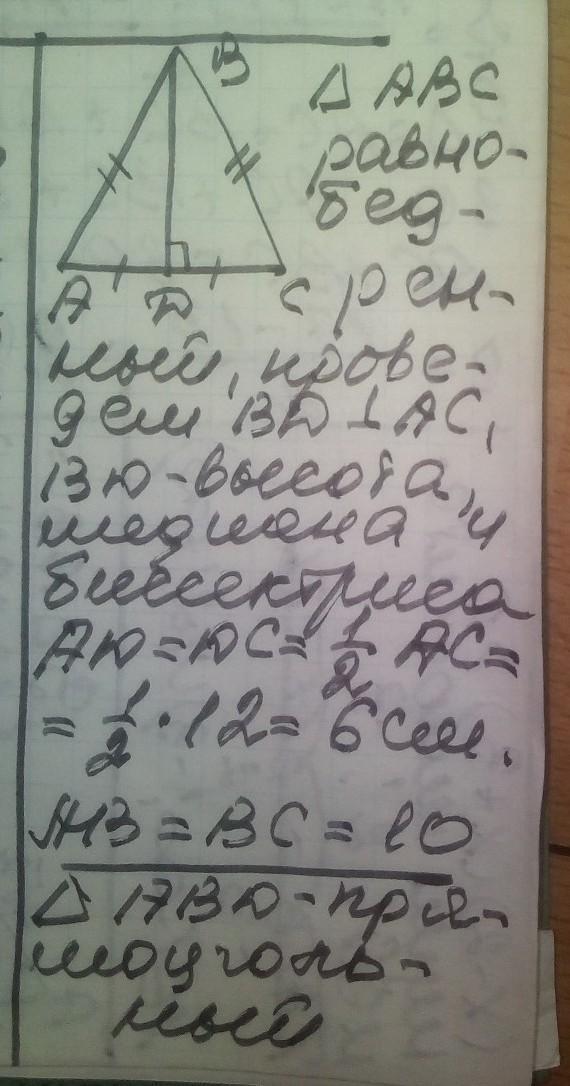 B
△ ABC
равно-
бед-
A D C рен-
ный, прове-
дем BD ⊥ AC,
BD - высота,
медиана и
биссектриса
AD = DC = 1/2 AC =
= 1/2 · 12 = 6 см.
AB = BC = 10
△ ABD - пря-
моуголь-
ный